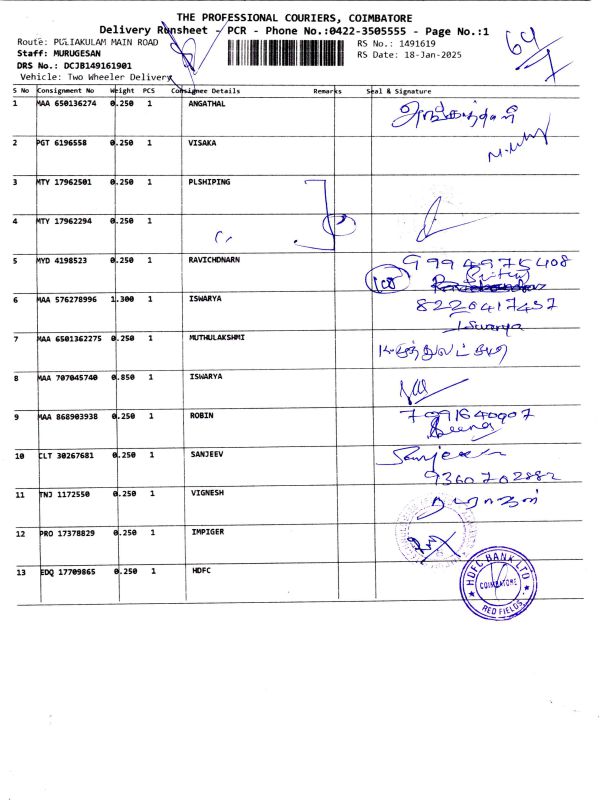 THE PROFESSIONAL COURIERS, COIMBATORE
Delivery Runsheet - PCR - Phone No.:0422-3505555 - Page No.:1
Route: PULIAKULAM MAIN ROAD
Staff: MURUGESAN
DRS No.: DCJB149161901
Vehicle: Two Wheeler Delivery
RS No.: 1491619
RS Date: 18-Jan-2025
64
S No Consignment No Weight PCS Consignee Details Remarks Seal & Signature
1 MAA 650136274 0.250 1 ANGATHAL
2 PGT 6196558 0.250 1 VISAKA
3 MTY 17962501 0.250 1 PLSHIPING
4 MTY 17962294 0.250 1
5 MYD 4198523 0.250 1 RAVICHDNARN 9994975408
108
6 MAA 576278996 1.300 1 ISWARYA 8220417437
Iswarya
7 MAA 6501362275 0.250 1 MUTHULAKSHMI
8 MAA 707045740 0.850 1 ISWARYA
9 MAA 868903938 0.250 1 ROBIN 7991640907
10 CLT 30267681 0.250 1 SANJEEV Sanjeev
9360702882
11 TNJ 1172550 0.250 1 VIGNESH
12 PRO 17378829 0.250 1 IMPIGER
13 EDQ 17709865 0.250 1 HDFC
HDFC BANK LTD
COIMBATORE
RED FIELDS